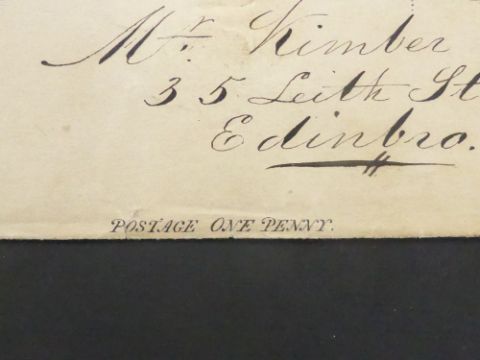 Mr. Kimber
35 Leith St
Edinbro.
POSTAGE ONE PENNY.